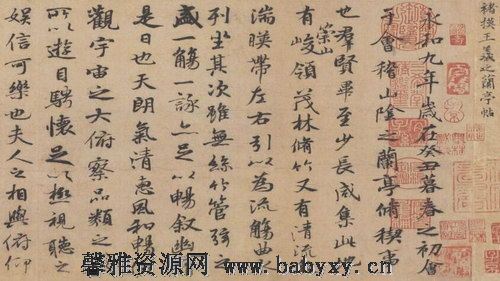 褚摸王羲之蘭亭帖
永和九年歲在癸丑暮春之初會
于會稽山陰之蘭亭脩稧事
也群賢畢至少長咸集此地
有崇山峻領茂林脩竹又有清流
湍暎帶左右引以為流觴曲
列坐其次雖無絲竹管弦之
盛一觴一詠亦足以暢敘幽
是日也天朗氣清惠風和暢
觀宇宙之大俯察品類之
所以遊目騁懷足以極視聽之
娛信可樂也夫人之相與俯仰
馨雅资源网 www.babyxy.cn